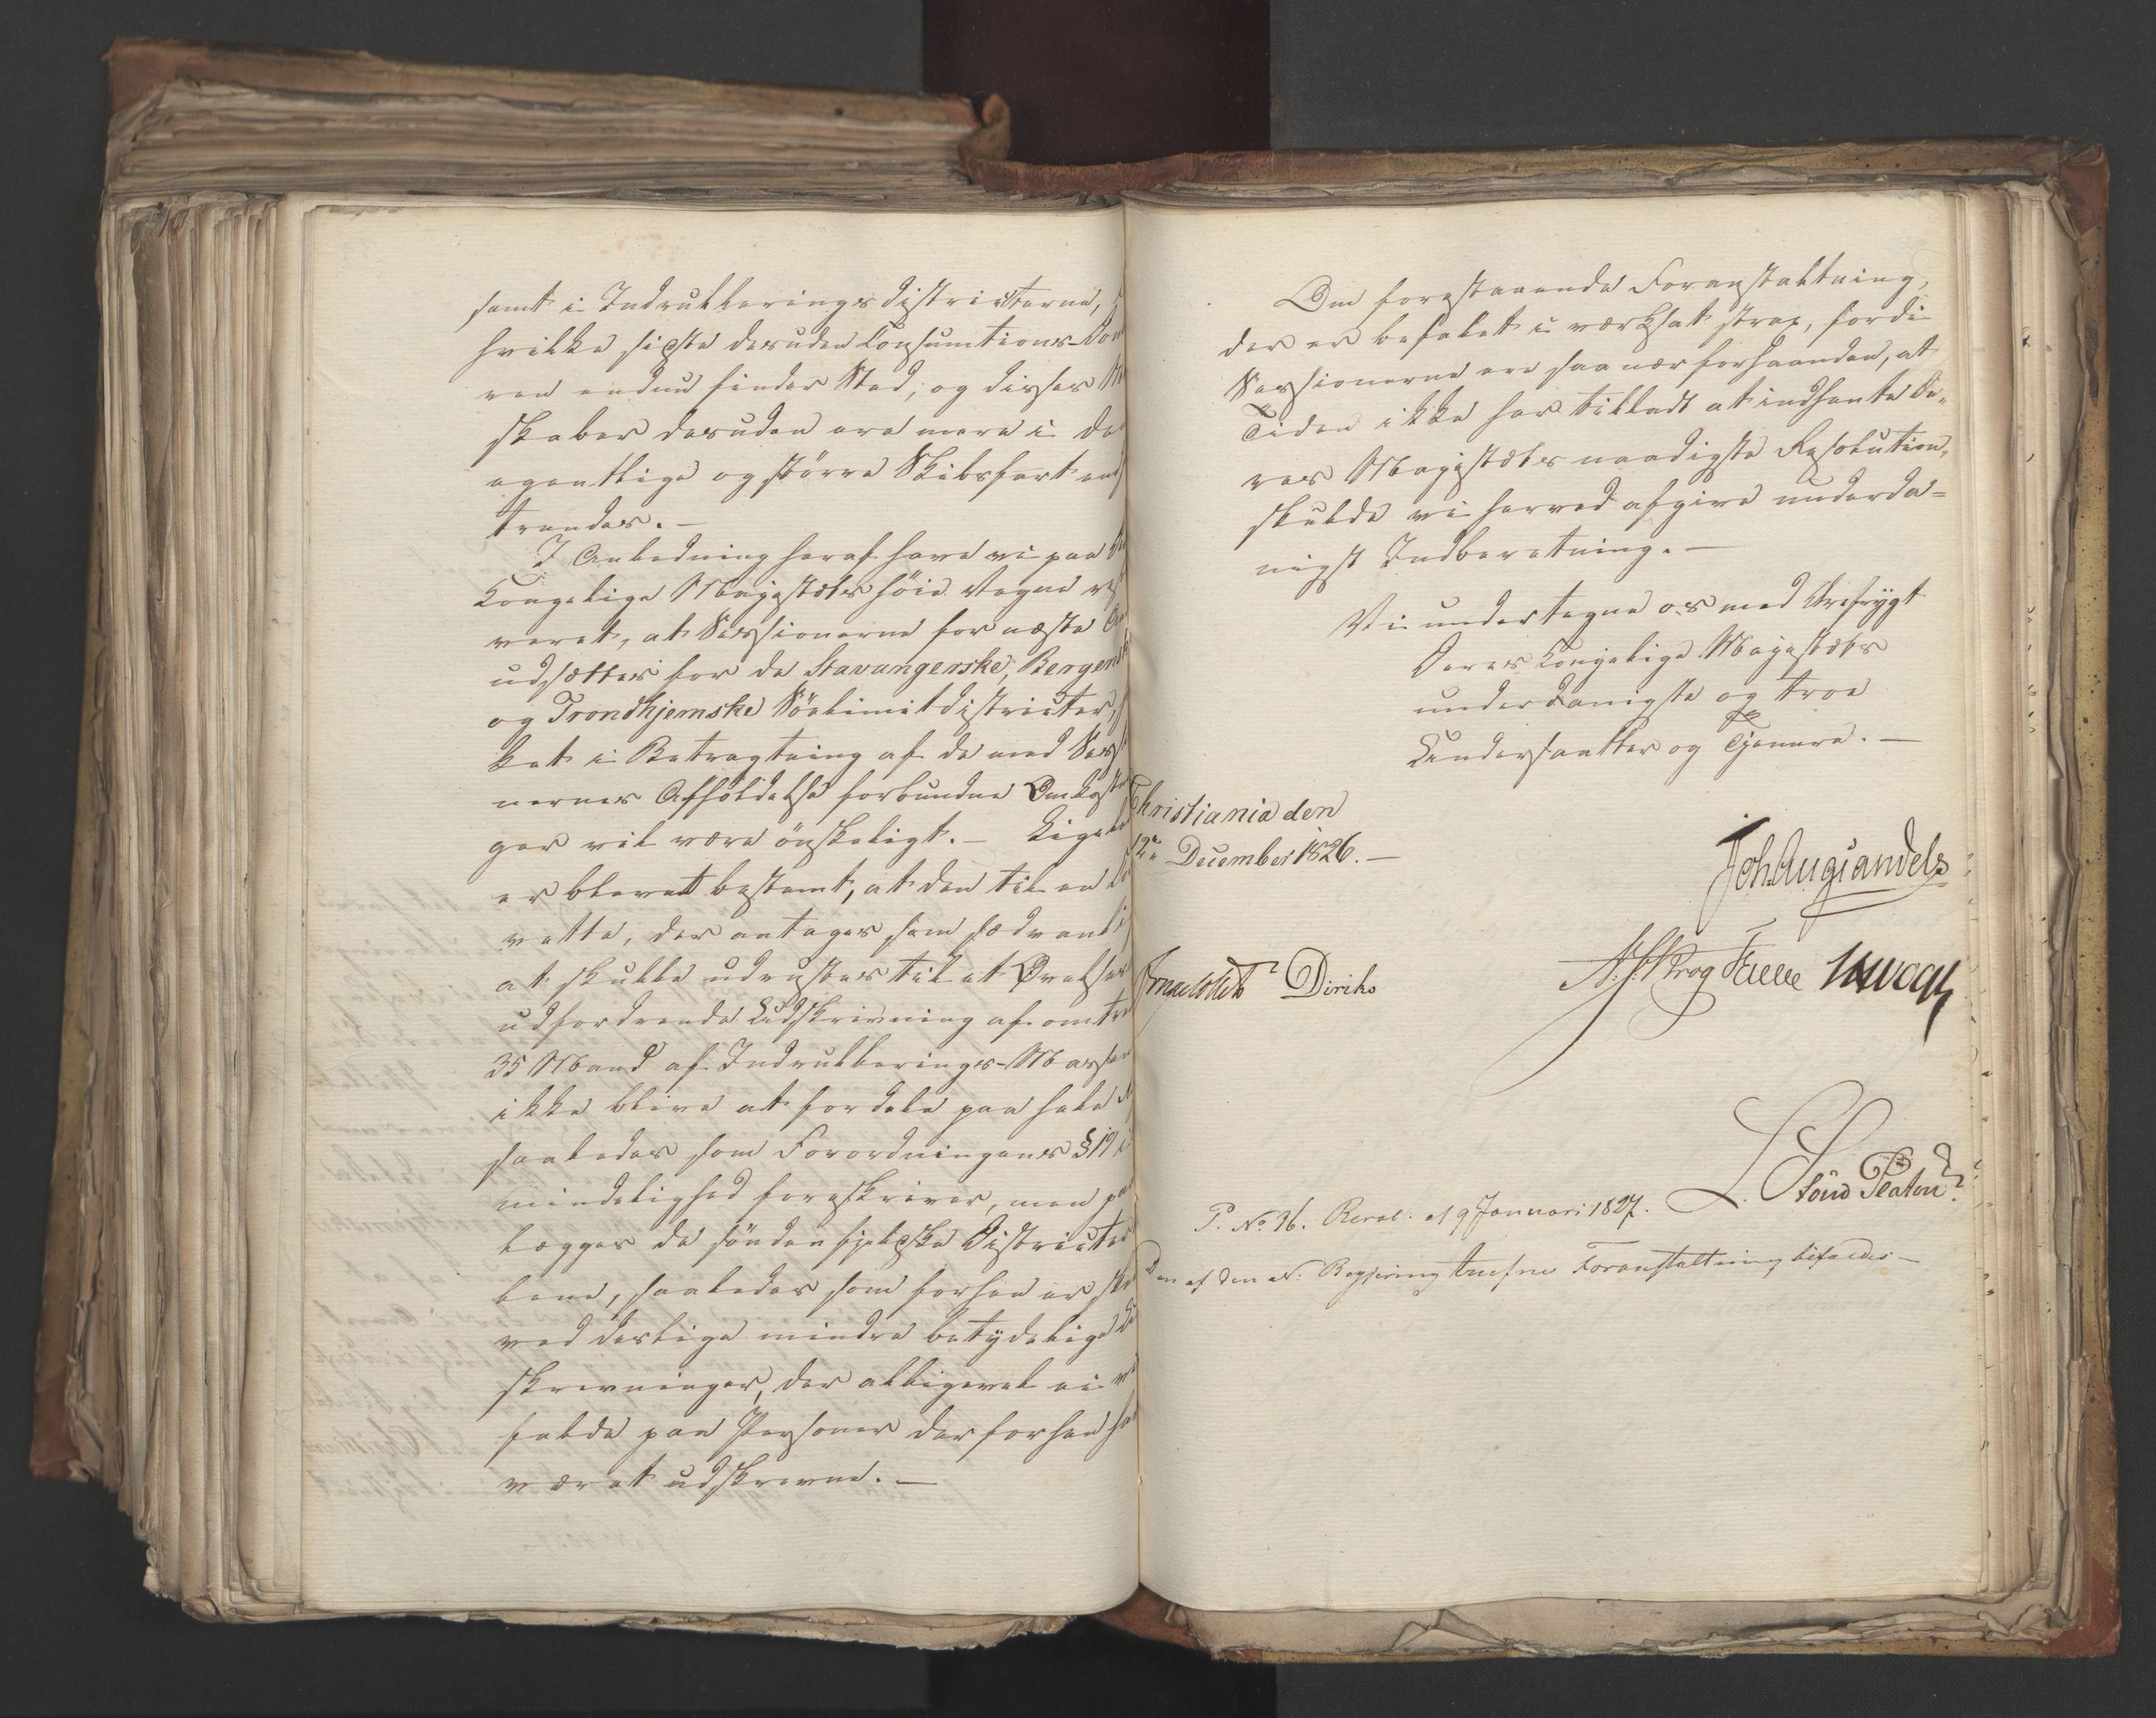 samt i Indrulleringsdistricterne,
hvilke sidste desuden Consumtions-
ven endnu finder Sted, og disses
skaber desuden ere mere i
egentlige og större Skibsfart
trendes. —
I Anledning heraf have vi paa
Kongelige Majestæts höie Vegne
veret, at Sessionerne for næste
udsættes for de Stavangerske, Bergensk
og Trondhjemske Sölimitdistricter,
ket i Betragtning af de med Sess
nernes Afholdelse forbundne Omkost
ger vil være önskeligt. — Ligele
er blevet bestemt, at den til en
vette, der antages som sædvanli
at skulle udrustes til et Övelses
udfordrende Udskrivning af omtre
35 Mand af Indrullerings-Massen
ikke blive at fordele paa hele
saaledes som Forordningens § 19 i
mindelighed foreskriver, men paa
lægges de söndenfjeldske Districter
lene, saaledes som forhen er ske
ved deslige mindre betydelige
skrivninger, der alligevel ei
falde paa Personer der forhen ha
været udskrevne. —
Om forestaaende Foranstaltning,
der er befalet i værksat strax, fordi
Sessionerne ere saa nær forhaanden, at
Tiden ikke har tilladt at indhente De„
res Majestæts naadigste Resolution,
skulde vi herved afgive underda=
nigst Indberetning. —
Vi undertegne os med Ærefrygt
Deres Kongelige Majestæts
underdanigste og troe
Undersaatter og Tjenere. —
Christiania den
12te December 1826. —
Joh. Aug. Sandels
Collett Diriks
Krog Fasting
L. S.
Löwd Platou
P. No. 36. Resol. af 9 Januari 1827.
Den af den N. Regjering trufne Foranstaltning bifaldes —